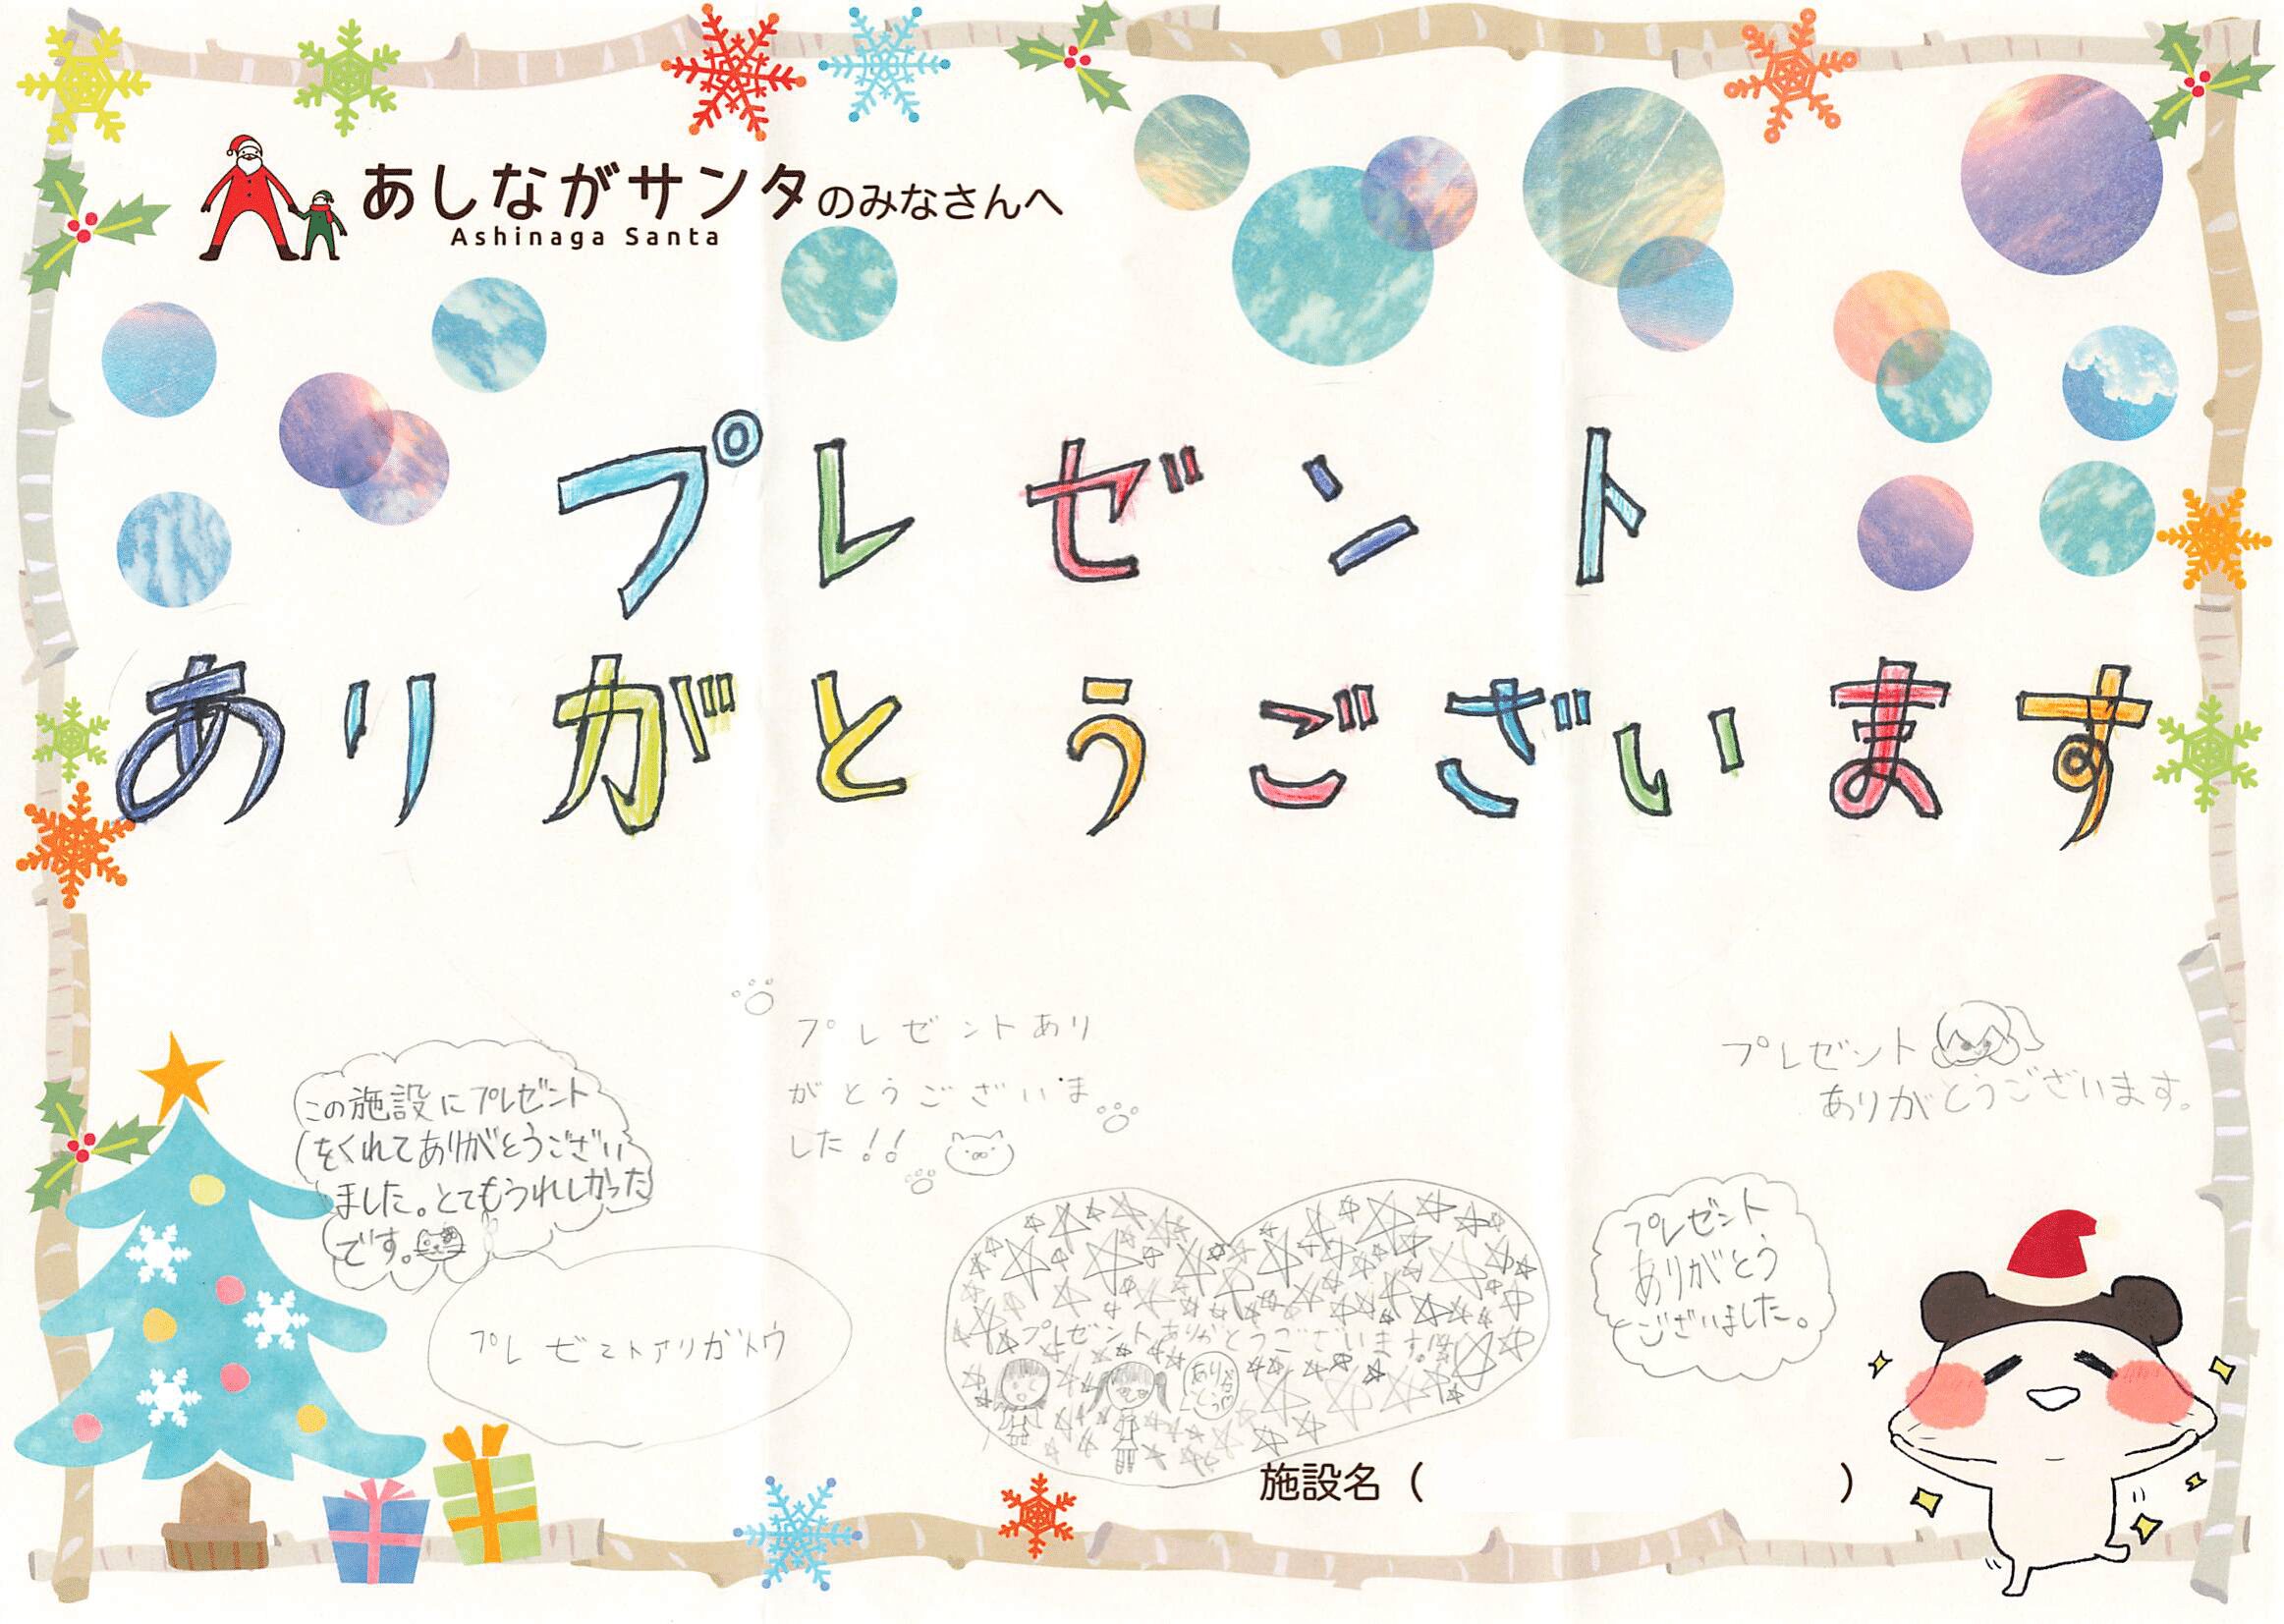 あしながサンタのみなさんへ
Ashinaga Santa
プレゼント
ありがとうございます
この施設にプレゼント
をくれてありがとうござい
ました。とてもうれしかった
です。
プレゼントあり
がとうございま
した!!
プレゼント
ありがとうございます。
プレゼントアリガトウ
プレゼントありがとうございます。
プレゼント
ありがとう
ございました。
施設名（ ）